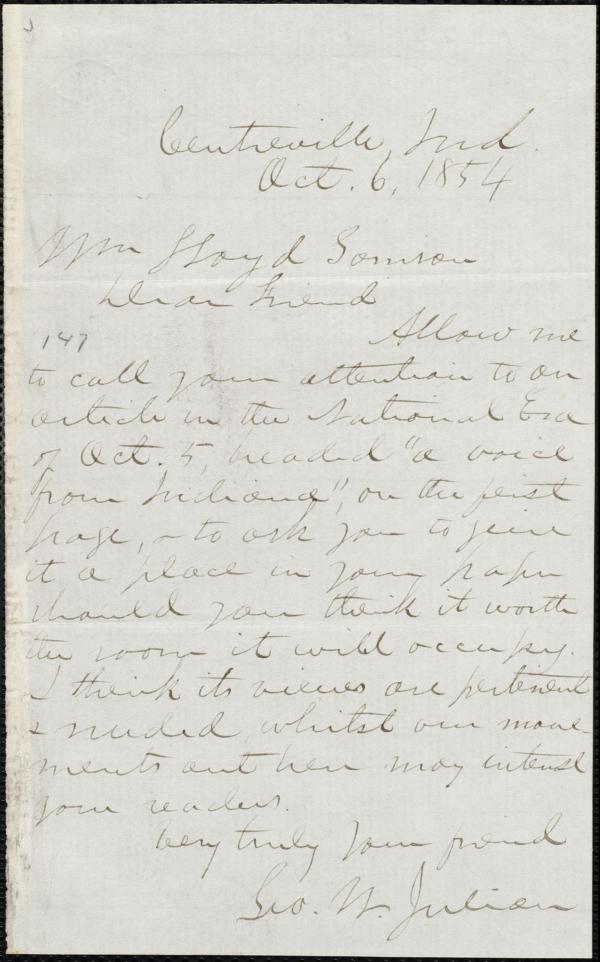 Centreville, Ind.
Oct. 6, 1854
Wm Lloyd Garrison
Dear Friend
147
Allow me
to call your attention to an
article in the National Era
of Oct. 5, headed "a voice
from Indiana", on the first
page, & to ask you to give
it a place in your paper
should you think it worth
the room it will occupy.
I think its views are pertinent
& needed, whilst our move-
ments out here may interest
your readers.
Very truly your friend
Geo. W. Julian